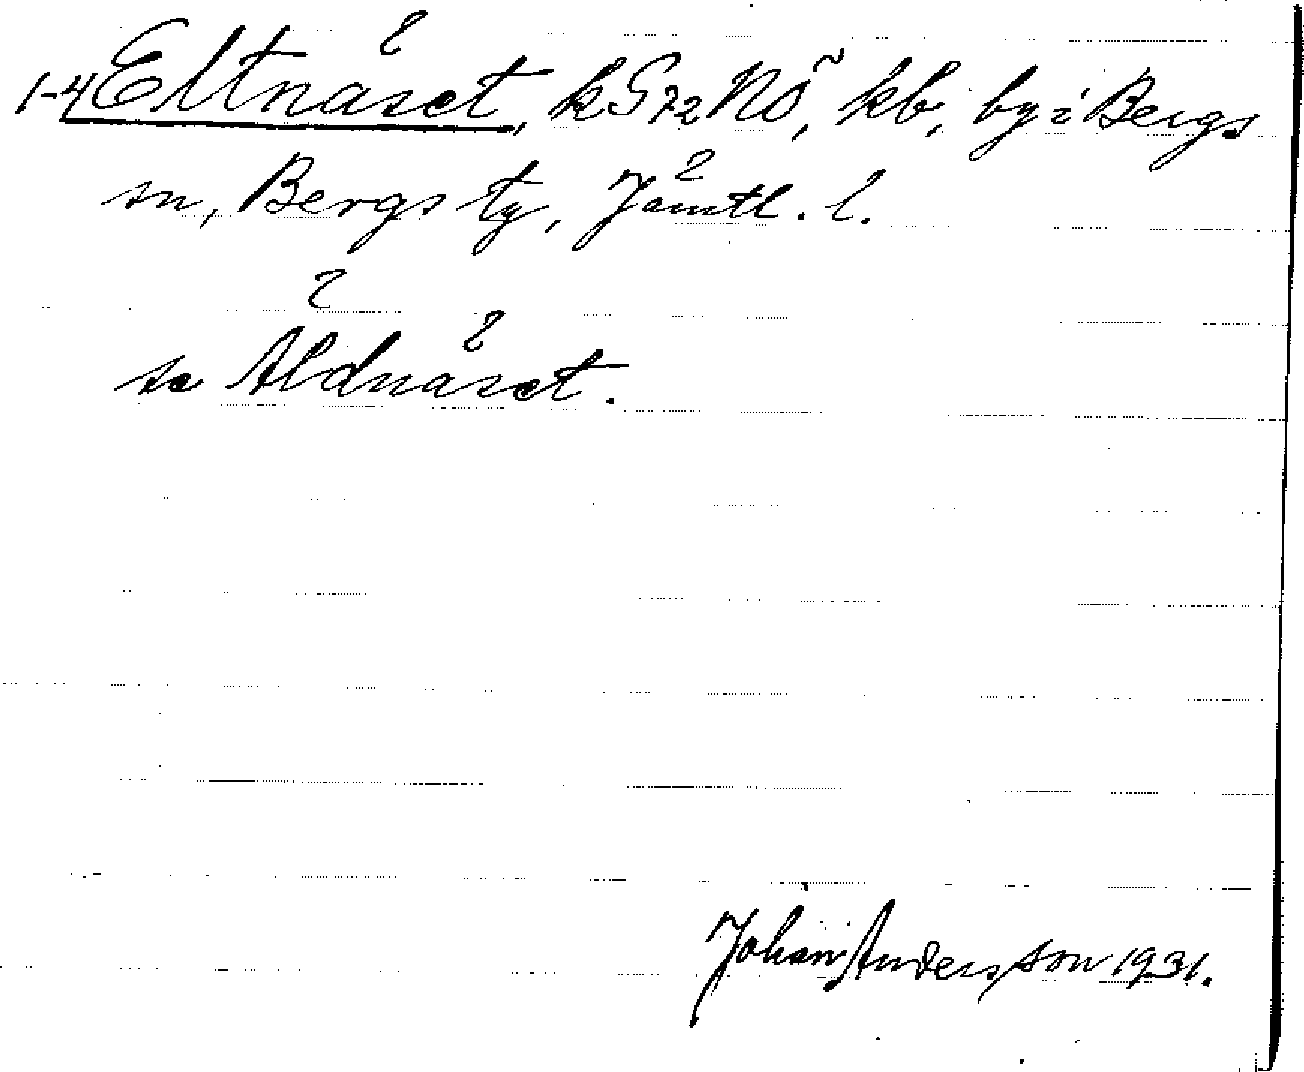 1-4 Eltnäset, kG72NÖ, kb, by i Bergs
sn, Bergs tg, Jämtl. l.
se Äldnäset.
Johan Andersson 1931.